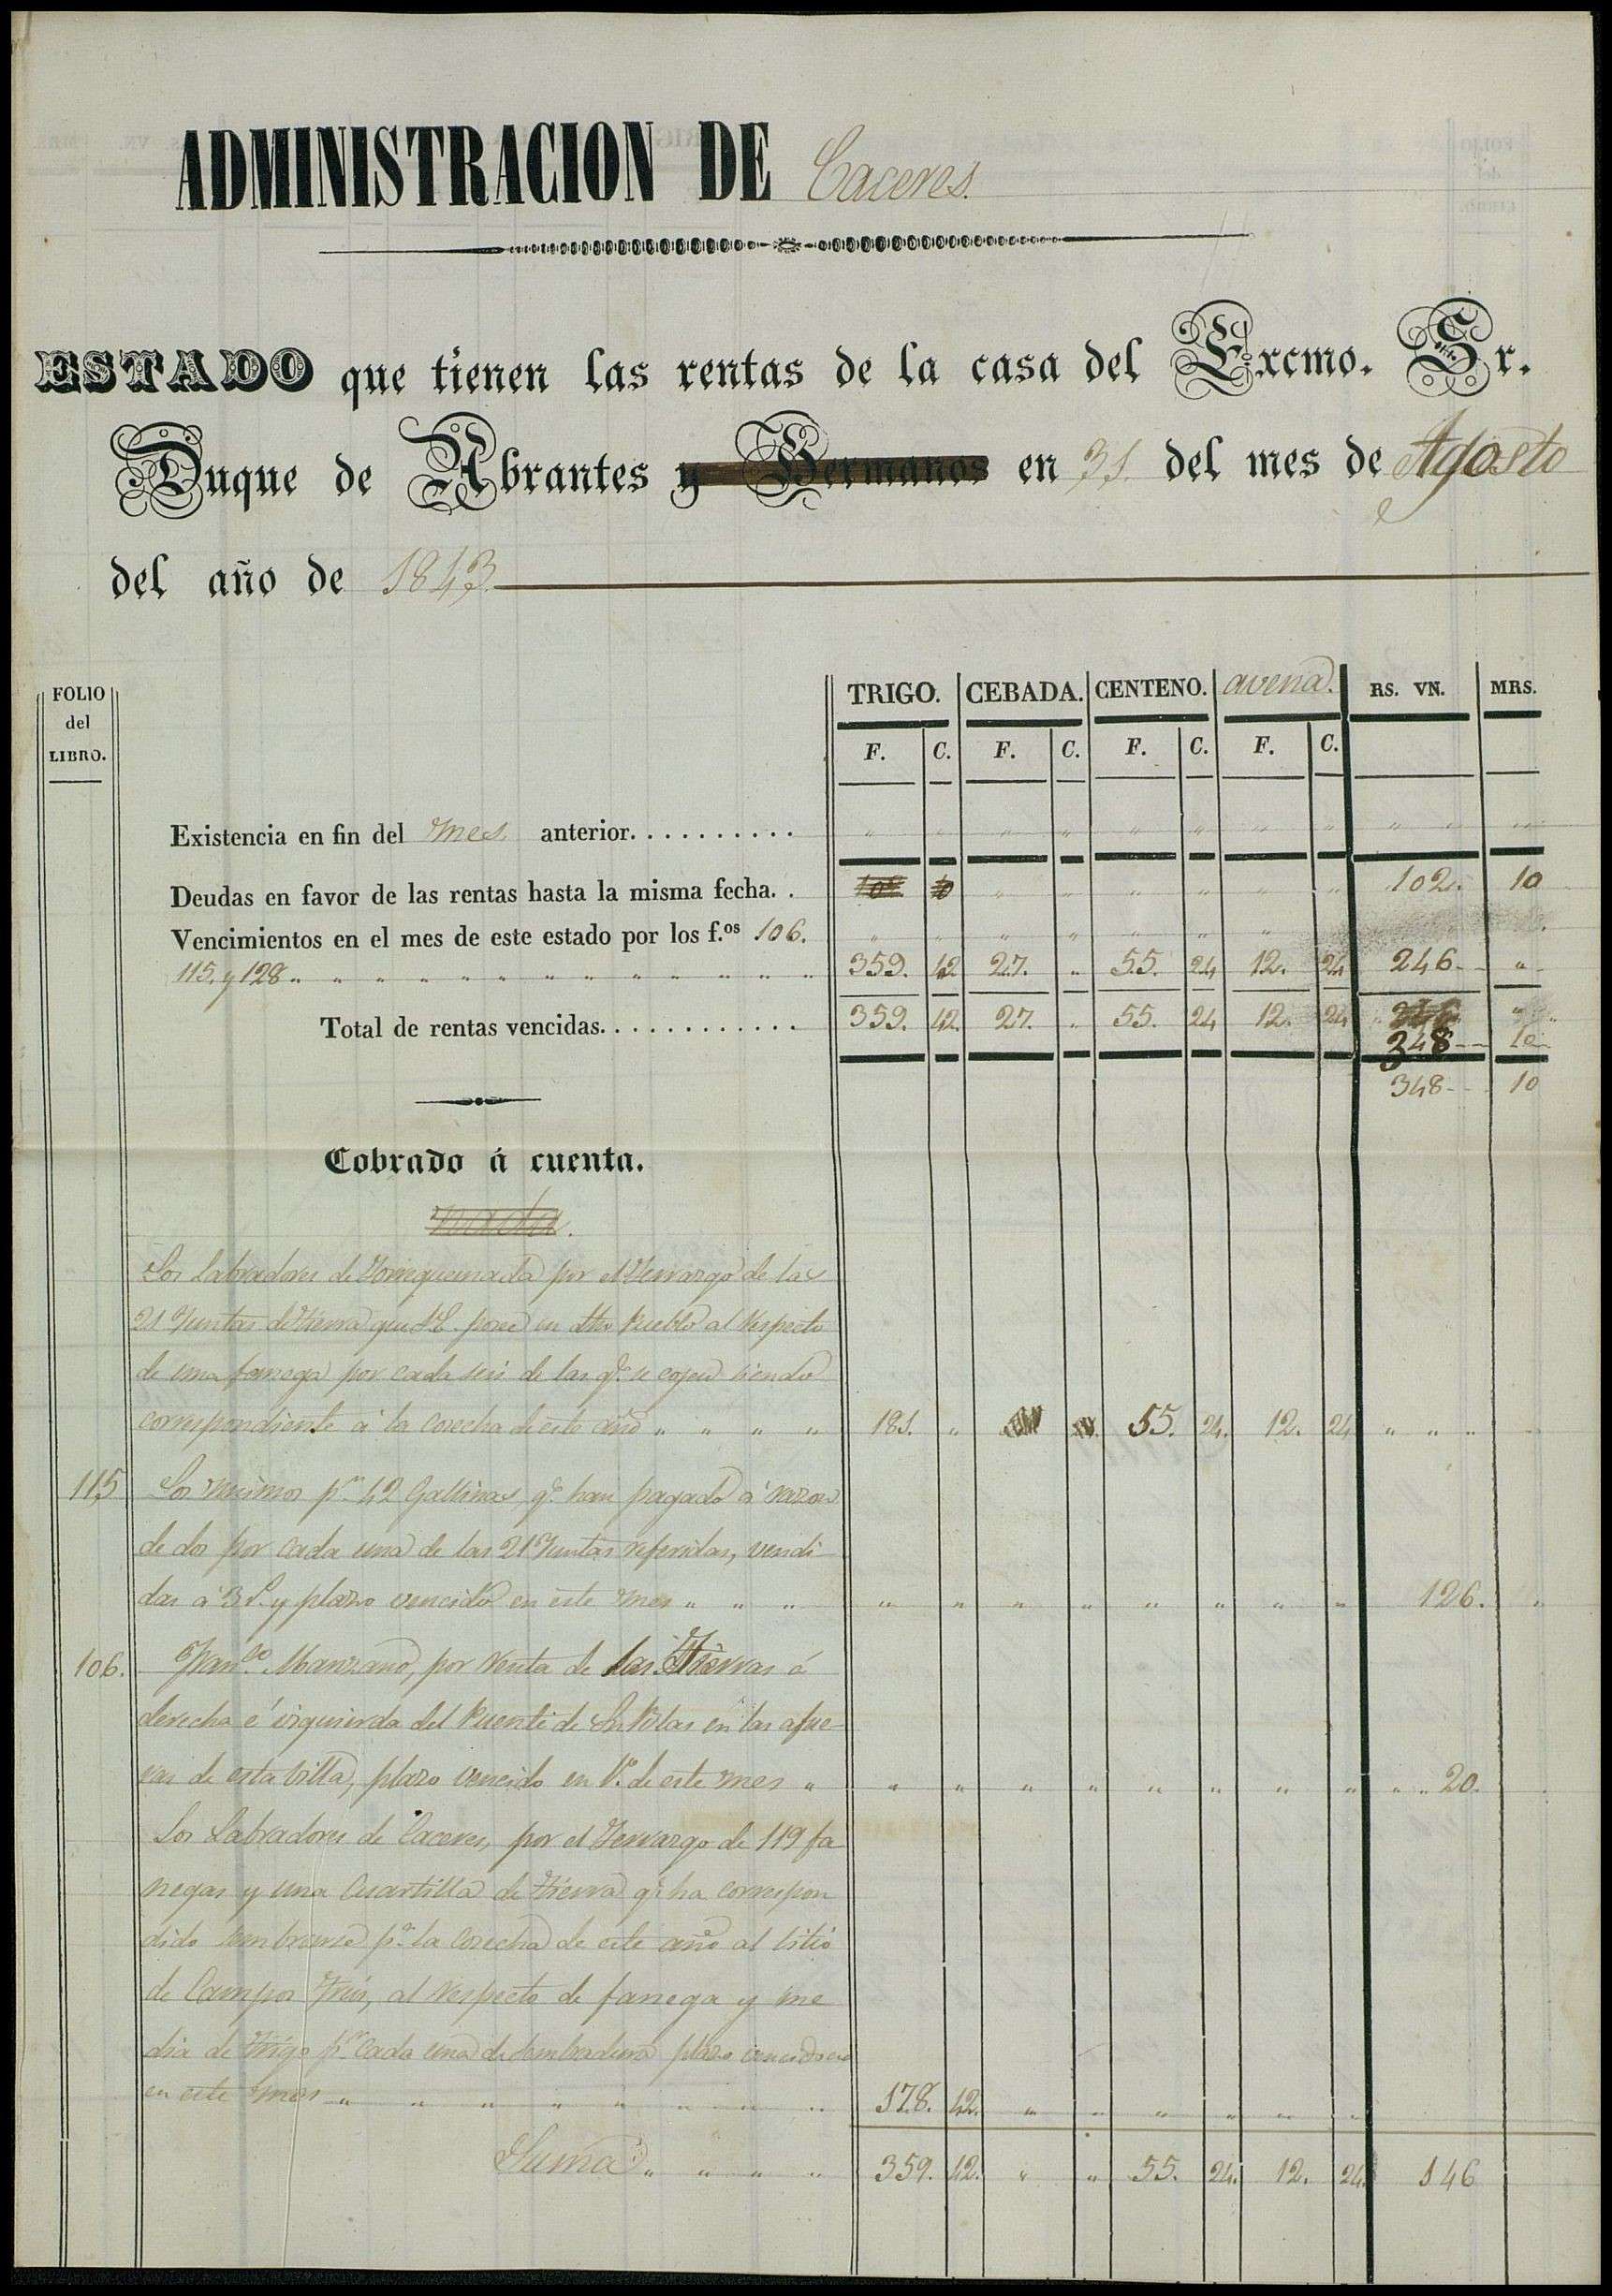 ADMINISTRACION DE Caceres.
ESTADO que tienen las rentas de la casa del Excmo. Sr.
Duque de Abrantes y Hermanos en 31. del mes de Agosto
del año de 1843.
FOLIO del LIBRO.
TRIGO. CEBADA. CENTENO. avena. RS. VN. MRS.
F. C. F. C. F. C. F. C.
Existencia en fin del mes anterior. . . . . . . . . . " " " " " " " " " "
Deudas en favor de las rentas hasta la misma fecha. . 102 10 " " " " " " 102. 10
Vencimientos en el mes de este estado por los f.os 106. " " " " " " "
115. y 128 " " " " " " " " " " " " 359. 42 27. " 55. 24 12. 24 246 "
Total de rentas vencidas. . . . . . . . . . . . 359. 42. 27. " 55. 24 12. 24 246 "
348 10
348 10
Cobrado á cuenta.
nada.
Los Labradores de Torrequemada por el Terrazgo de las
21 Yuntas de tierra que S.E. posee en dho Pueblo al respecto
de una fanega por cada seis de las q.e se cojen siendo
correspondiente á la cosecha de este año " " " " 181. " 55. 24. 12. 24 " " "
115 Los mismos p.r 42 Gallinas q.e han pagado á razon
de dos por cada una de las 21 Yuntas referidas, vendi-
das á 3 r.s y plazo vencido en este mes " " " " " " " " " " " 126. "
106. Fran.co Manzano, por renta de las Tierras á
derecha é izquierda del Puente de Sn Blas en las afue-
ras de esta villa, plazo vencido en 1.o de este mes " " " " " " " " " " " 20.
Los Labradores de Caceres, por el Terrazgo de 119 fa
negas y una Cuartilla de tierra q.e ha correspon
dido sembrarse p.a la cosecha de este año al sitio
de Campo frio, al respecto de fanega y me
dia de trigo p.r cada una de sembradura plazo vencido
en este mes " " " " " " " " 178. 42. " " " " " "
Suma " " " " 359. 42. " " 55. 24. 12. 24. 146